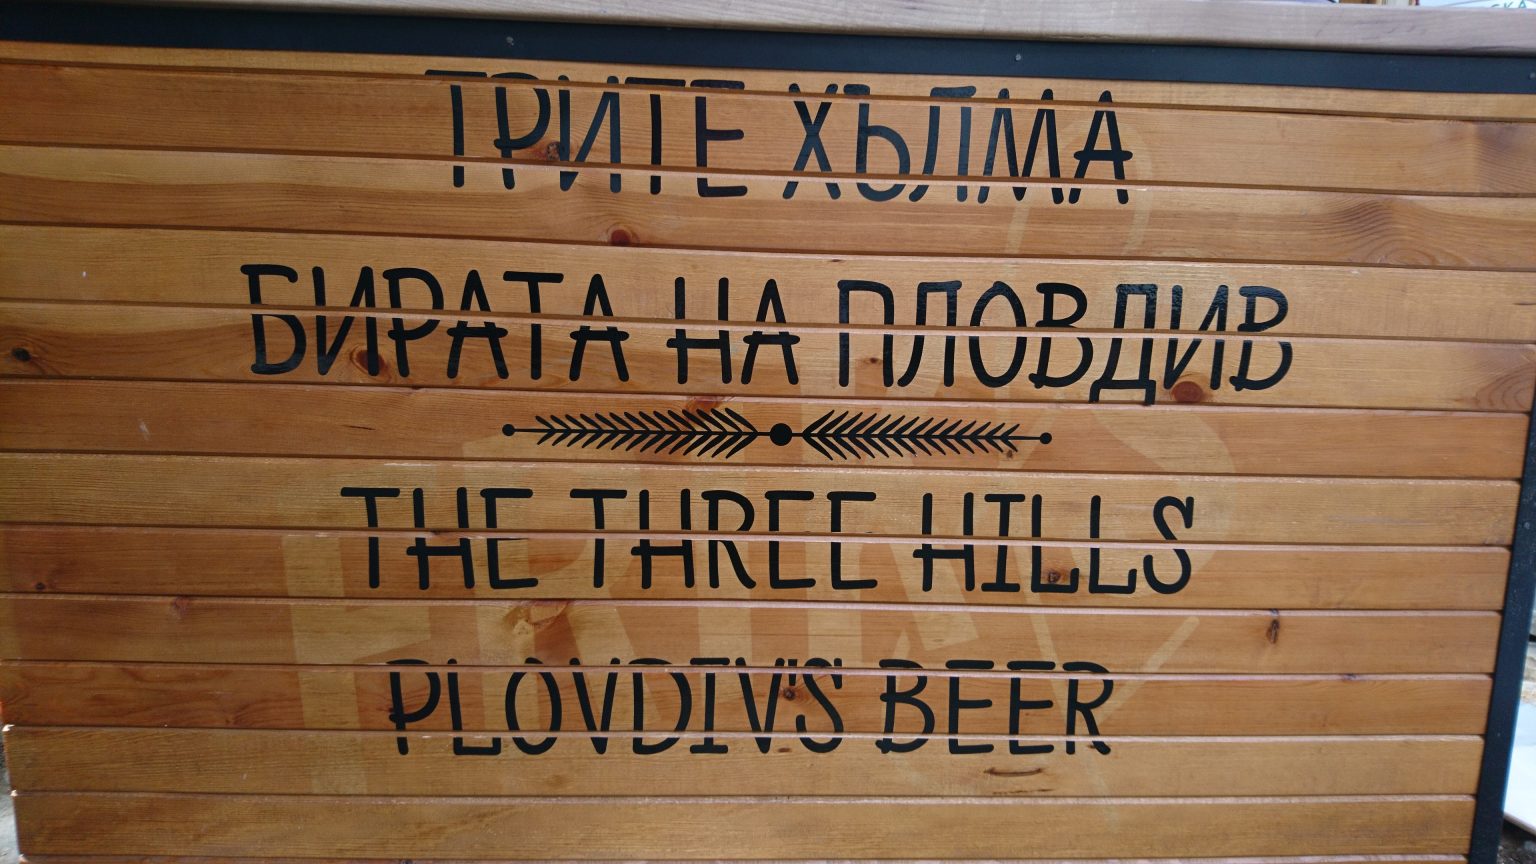 ТРИТЕ ХЪЛМА
БИРАТА НА ПЛОВДИВ
THE THREE HILLS
PLOVDIV'S BEER